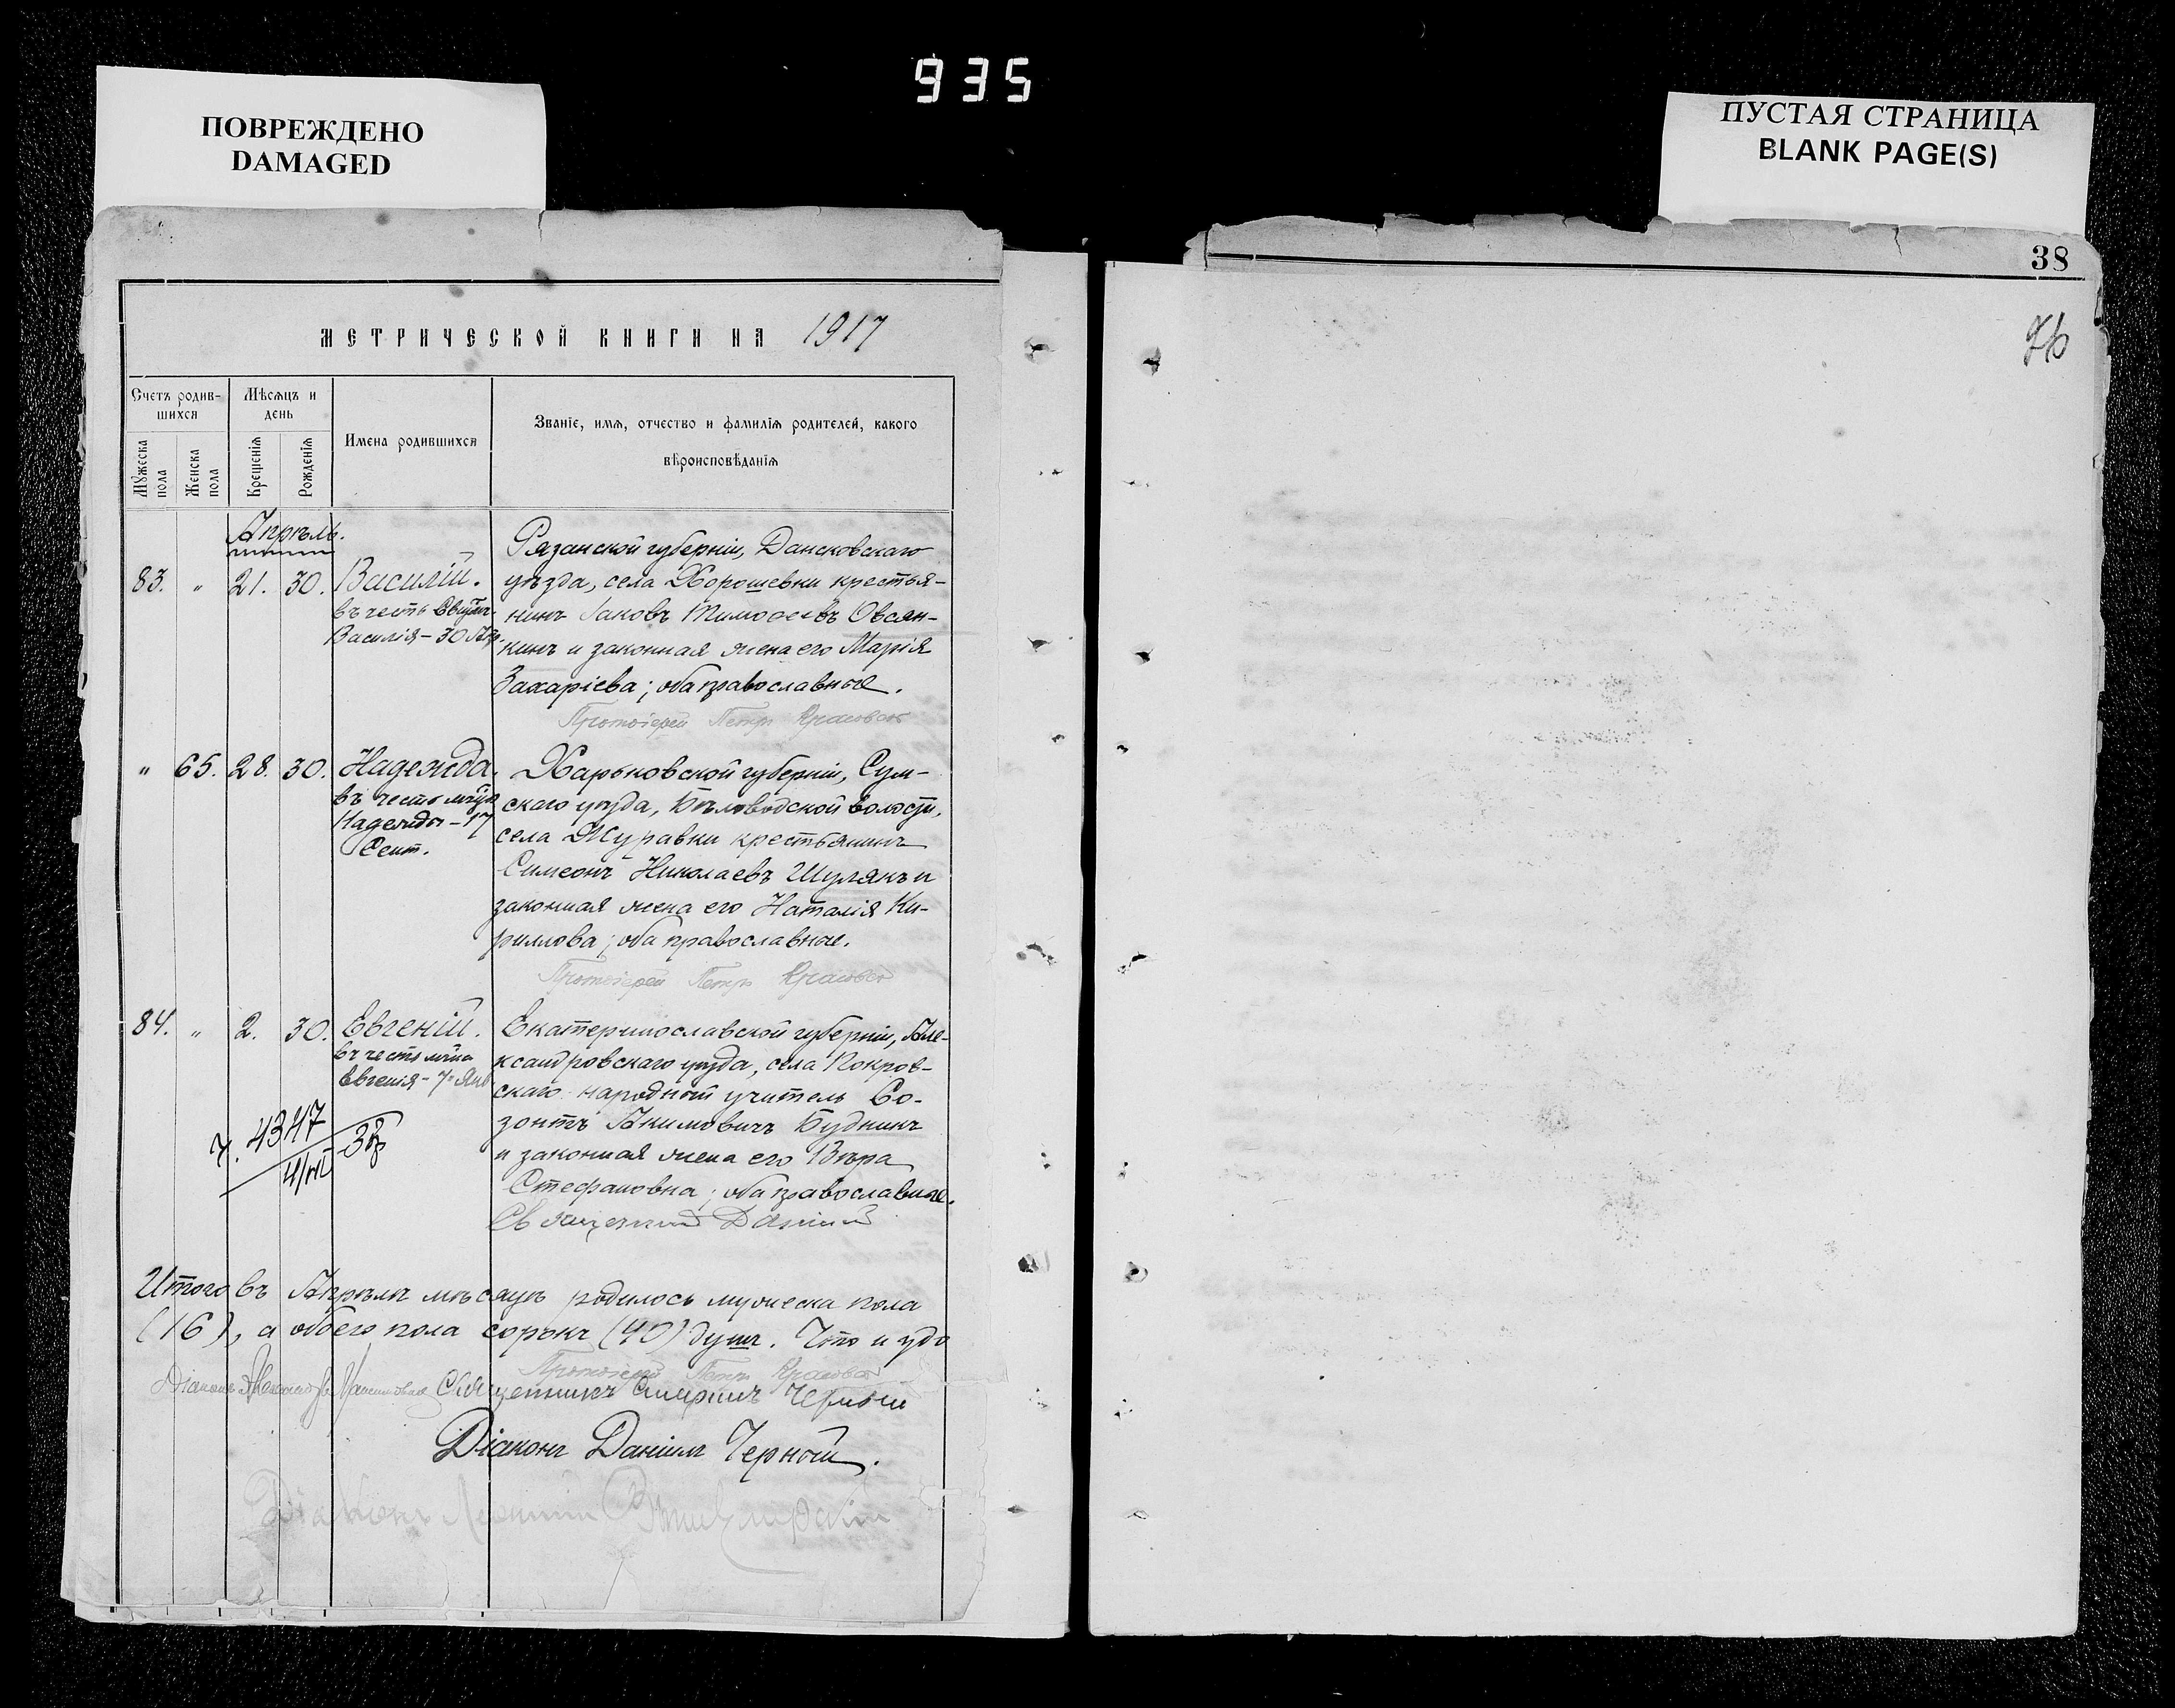 935
ПОВРЕЖДЕНО
DAMAGED
ПУСТАЯ СТРАНИЦА
BLANK PAGE(S)
38
МЕТРИЧЕСКОЙ КНИГИ НА 1917
Счетъ родив-
шихся
Мѣсяцъ и
день
Мужеска
пола
Женска
пола
Крещенія
Рожденія
Имена родившихся
Званіе, имя, отчество и фамилія родителей, какого
вѣроисповѣданія
Апрѣль.
83. " 21. 30. Василій.
въ честь
Василія - 30 Апр.
Рязанской губерніи, Дансковскаго
уѣзда, села Хорошевки крестья-
нинъ Іаковъ Тимоѳеевъ Овсян-
кинъ и законная жена его Марія
Захаріева; оба православные.
Протоіерей Петръ
" 65. 28. 30. Надежда.
въ честь мчцы
Надежды - 17
Сент.
Харьковской губерніи, Сум-
скаго уѣзда, Бѣловодской волости,
села Журавки крестьянинъ
Симеонъ Николаевъ Шулякъ и
законная жена его Наталія Ки-
риллова; оба православные.
Протоіерей Петръ
84. " 2. 30. Евгеній.
въ честь мчка
Евгенія - 7 Янв
Екатеринославской губерніи, Але-
ксандровскаго уѣзда, села Покров-
скаго народный учитель Со-
зонтъ Акимовичъ Будникъ
и законная жена его Вѣра
Стефановна; оба православные.
4347
Итого въ Апрѣлѣ мѣсяцѣ родилось мужеска пола
(16), а обоего пола сорокъ (40) душъ. Что и удо
Протоіерей Петръ
Діаконъ
Священникъ Черный
Діаконъ Даніилъ Черный.
Діаконъ